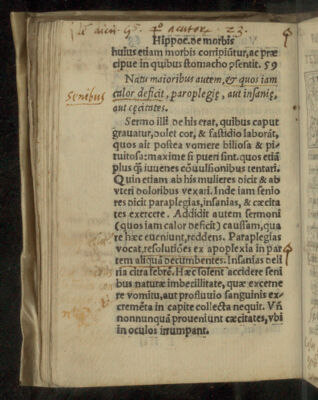 Hippoc. de morbis
huius etiam morbis corripiūtur, ac præ
cipue in quibus stomacho p̄sentit. 59
Natu maioribus autem, & quos iam
Senibus
calor deficit, paroplegię, aut insanię,
aut cęcitates.
Sermo illi de his erat, quibus caput
grauatur, dolet cor, & fastidio laborāt,
quos ait postea vomere biliosa & pi-
tuitosa: maxime si pueri sint. quos etiā
plus q̃ iuuenes cōuulsionibus tentari.
Quin etiam ab his mulieres dicit & ab
vteri doloribus vexari. Inde iam senio
res dicit paraplegias, insanias, & cæcita
tes exercere. Addidit autem sermoni
(quos iam calor deficit) caussam, qua
re hæc eueniunt, reddens. Paraplegias
vocat, resolutiões ex apoplexia in par
tem aliquā decumbentes. Insanias deli
ria citra febrē. Hæc solent accidere seni
bus naturæ imbecillitate, quæ excerne
re vomitu, aut profluuio sanguinis ex-
cremēta in capite collecta nequit. Vñ
nonnunquā proueniunt cæcitates, vbi
in oculos irrumpant.